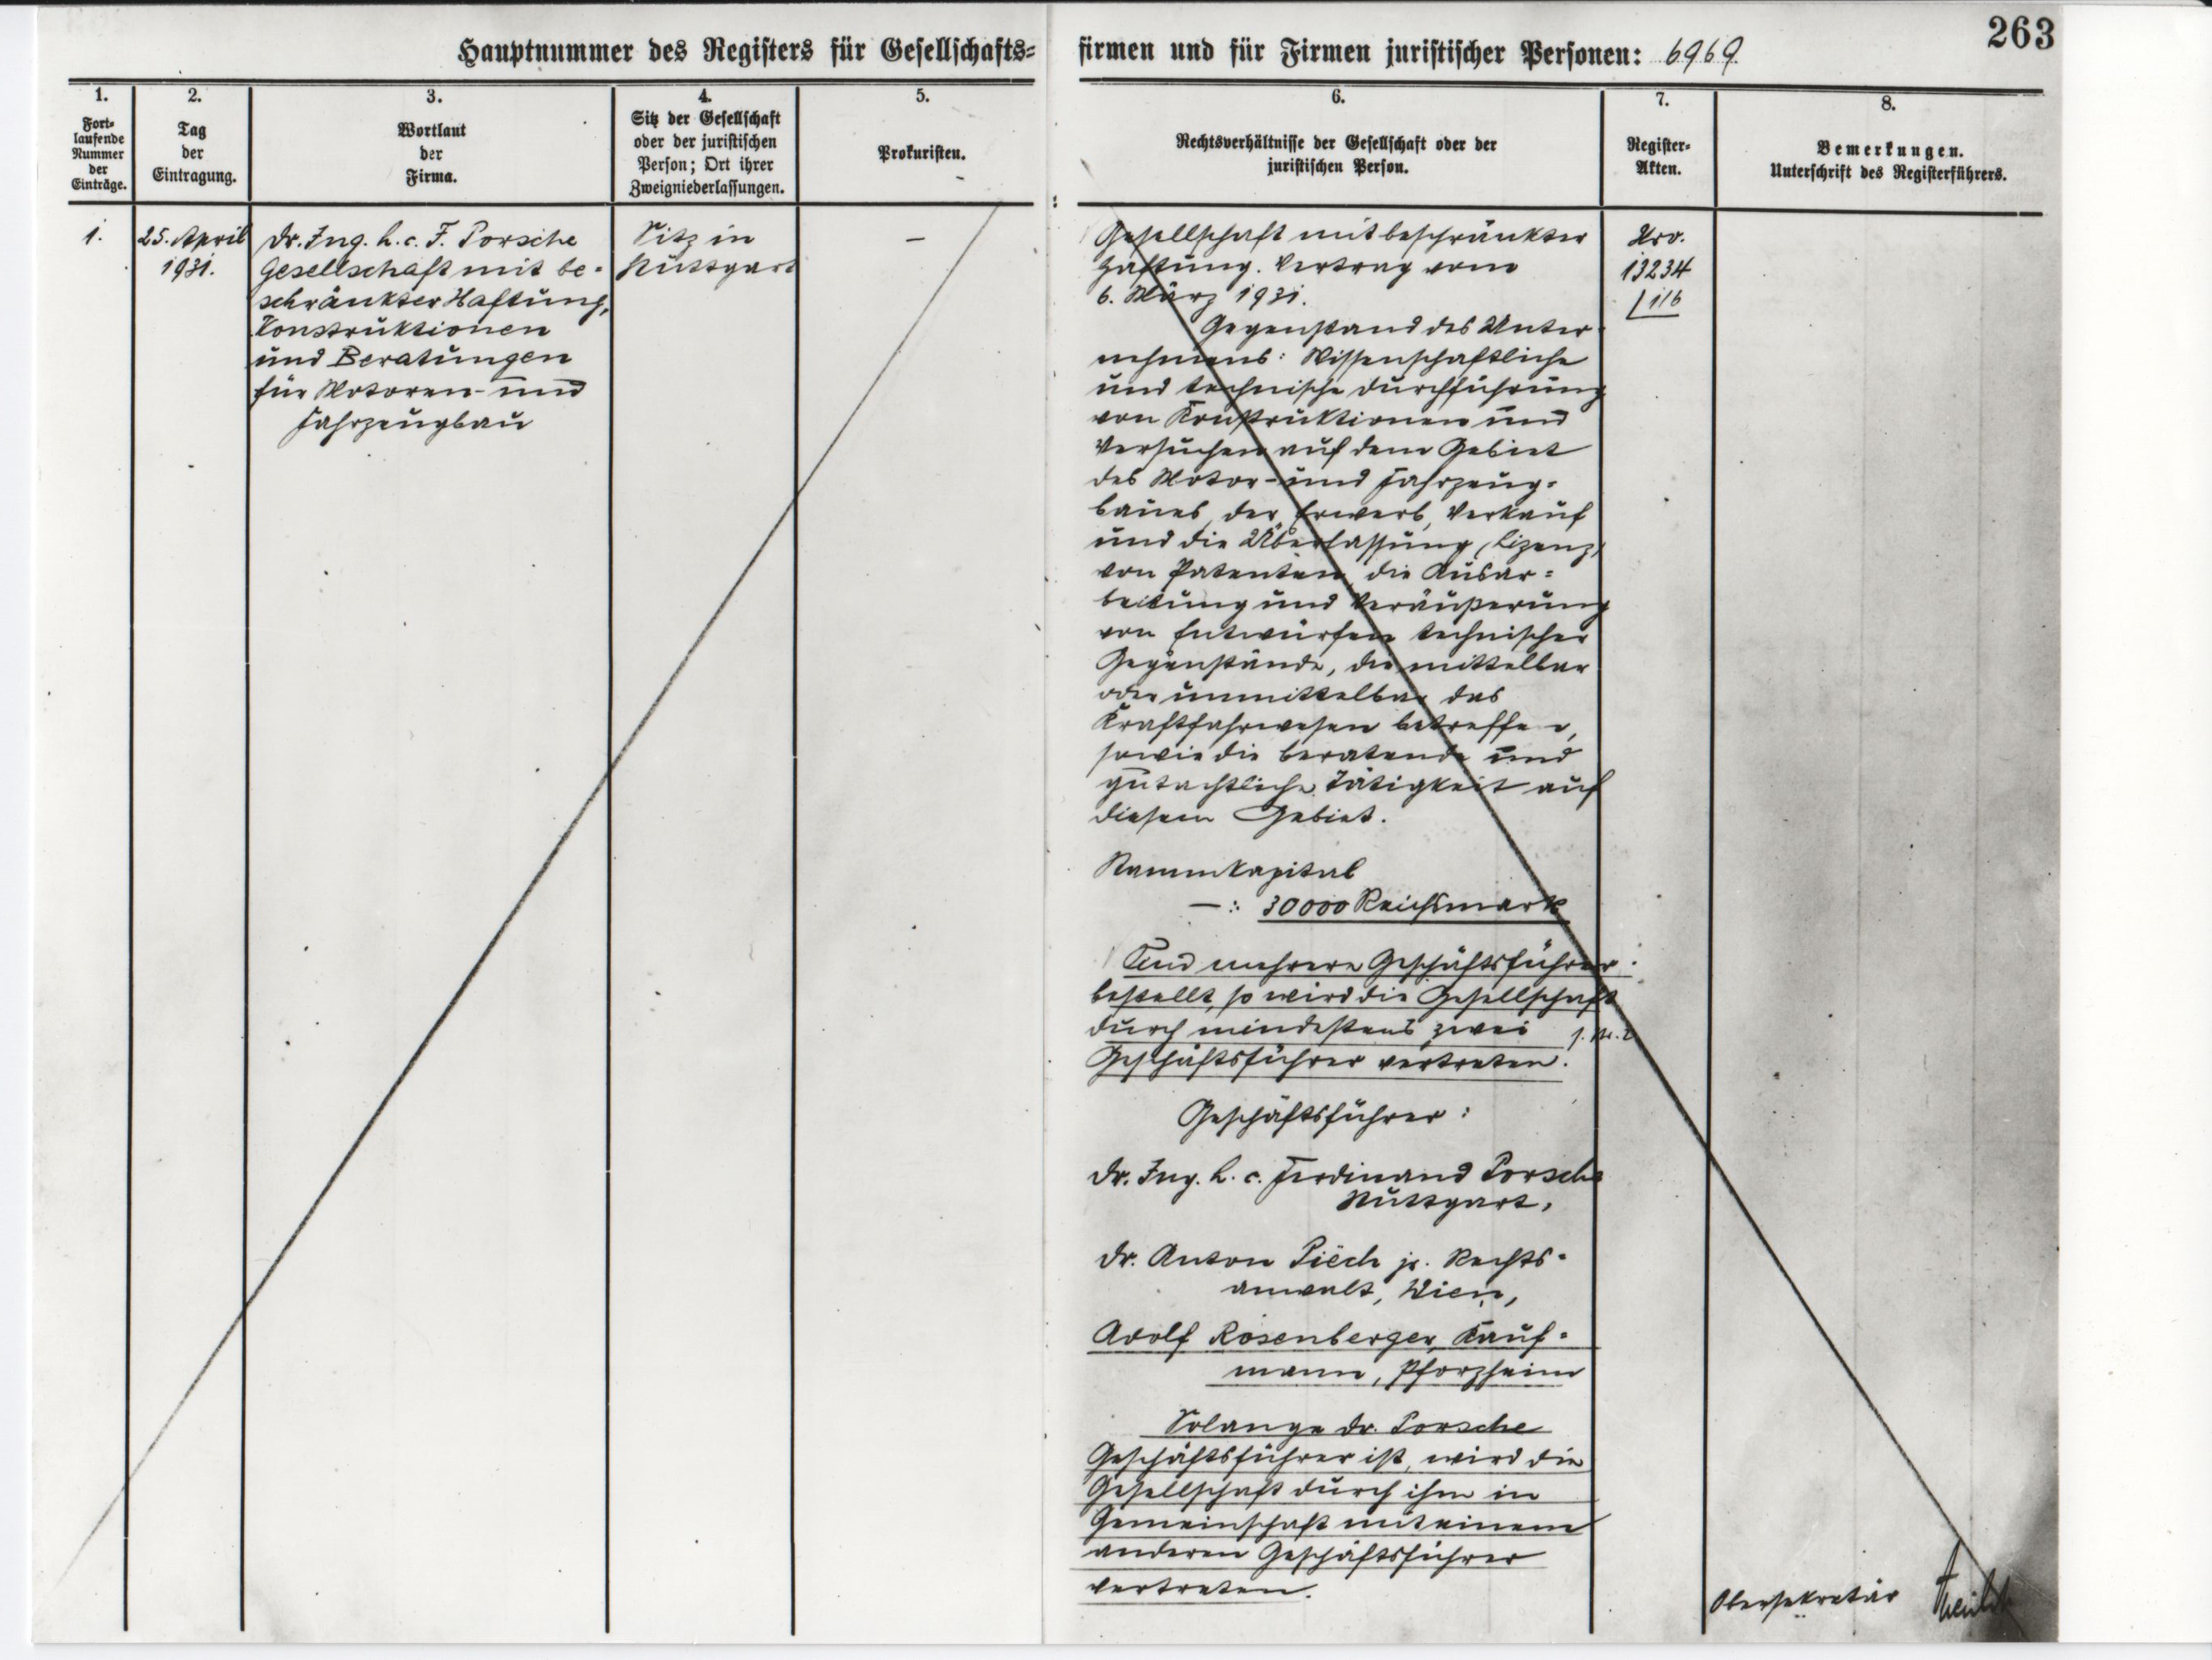 263
Hauptnummer des Registers für Gesellschafts=
firmen und für Firmen juristischer Personen: 6969
1.
Fort=
laufende
Nummer
der
Einträge.
2.
Tag
der
Eintragung.
3.
Wortlaut
der
Firma.
4.
Sitz der Gesellschaft
oder der juristischen
Person; Ort ihrer
Zweigniederlassungen.
5.
Prokuristen.
6.
Rechtsverhältnisse der Gesellschaft oder der
juristischen Person.
7.
Register=
Akten.
8.
Bemerkungen.
Unterschrift des Registerführers.
1.
25. April
1931.
Dr. Ing. h. c. F. Porsche
Gesellschaft mit be=
schränkter Haftung,
Konstruktionen
und Beratungen
für Motoren- und
Fahrzeugbau
Sitz in
Stuttgart
—
Gesellschaft mit beschränkter
Haftung. Vertrag vom
6. März 1931.
Gegenstand des Unter=
nehmens: Wissenschaftliche
und technische Durchführung
von Konstruktionen und
Versuchen auf dem Gebiet
des Motor- und Fahrzeug=
baues, der Erwerb, Verkauf
und die Überlassung (Lizenz)
von Patenten, die Ausar=
beitung und Veräußerung
von Entwürfen technischer
Gegenstände, die mittelbar
oder unmittelbar das
Kraftfahrwesen betreffen,
sowie die beratende und
gutachtliche Tätigkeit auf
diesem Gebiet.
Stammkapital
—: 30000 Reichsmark
Sind mehrere Geschäftsführer
bestellt, so wird die Gesellschaft
durch mindestens zwei
Geschäftsführer vertreten.
Geschäftsführer:
Dr. Ing. h. c. Ferdinand Porsche
Stuttgart,
Dr. Anton Piëch jr. Rechts=
anwalt, Wien,
Adolf Rosenberger, Kauf=
mann, Pforzheim
Solange Dr. Porsche
Geschäftsführer ist, wird die
Gesellschaft durch ihn in
Gemeinschaft mit einem
anderen Geschäftsführer
vertreten.
13234
1/6
Obersekretär